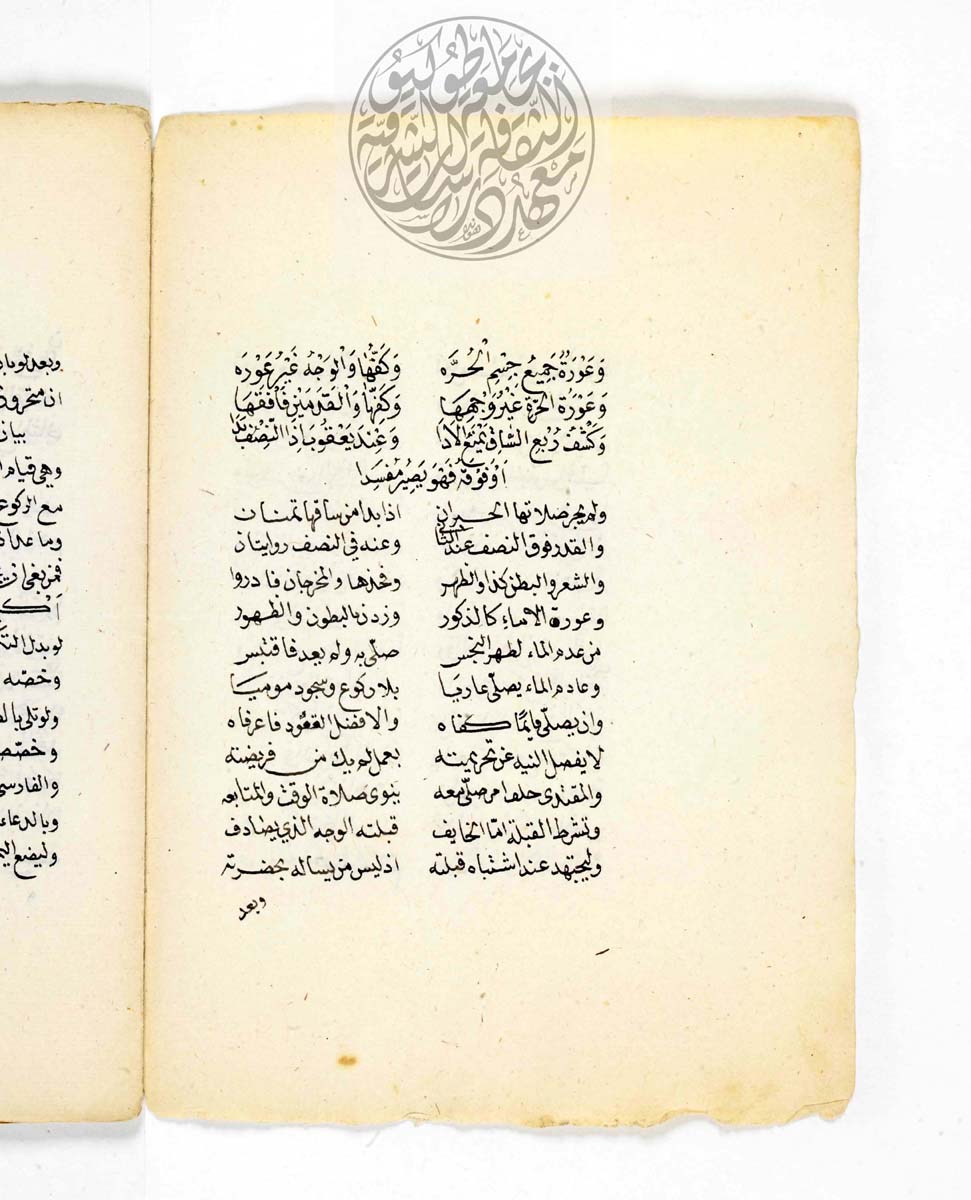 وَعَوْرَةٌ جَمِيعُ جِسْمِ الْحُرَّه وَكَفُّهَا وَالْوَجْهُ غَيْرُ عَوْرَه
وَعَوْرَةُ الحُرَّةِ غَيْرُ وَجْهِهَا وَكَفِّهَا وَالْقَدَمَيْنِ فَافْقَهَا
وَكَشْفُ رُبْعِ السَّاقِ يَمْنَعُ الأَدَا وَعِنْدَ يَعْقُوبَ إِذَا النِّصْفُ بَدَا
اَوْ فَوْقَهُ فَهْوَ يَصِيرُ مُفْسِدَا
ولم يجز صلاتها الحبران اذا بدا من ساقها ثمنان
والقدر فوق النصف عند الثاني وعنه في النصف روايتان
والشعر والبطن كذا والظهر وفخذها والمخرجان فادروا
وعورة الاماء كالذكور وزدن بالبطون والظهور
من عدم الماء لطهر النجس صلّى به ولم يعد فاقتبس
وعادم الماء يصلّي عاريا بلا ركوع وسجود موميا
وان يصلّي قايمًا كفاه والافضل القعود فاعرفاه
لا يفصل النيه عن تحريمته بعمل لم يك من فريضته
والمقتدى خلف امر صلّى معه ينوى صلاة الوقت والمتابعه
وتشرط القبلة امّا الخايف قبلته الوجه الذي يصادف
وليجتهد عند اشتباه قبلته اذ ليس من يساله بحضرته
وبعد
وهي قيام
مع الركوع
وما عدا
لو بدل
وخصّه
وبالدعاء
معهد الثقافة والدراسات الشرقية بجامعة طوكيو